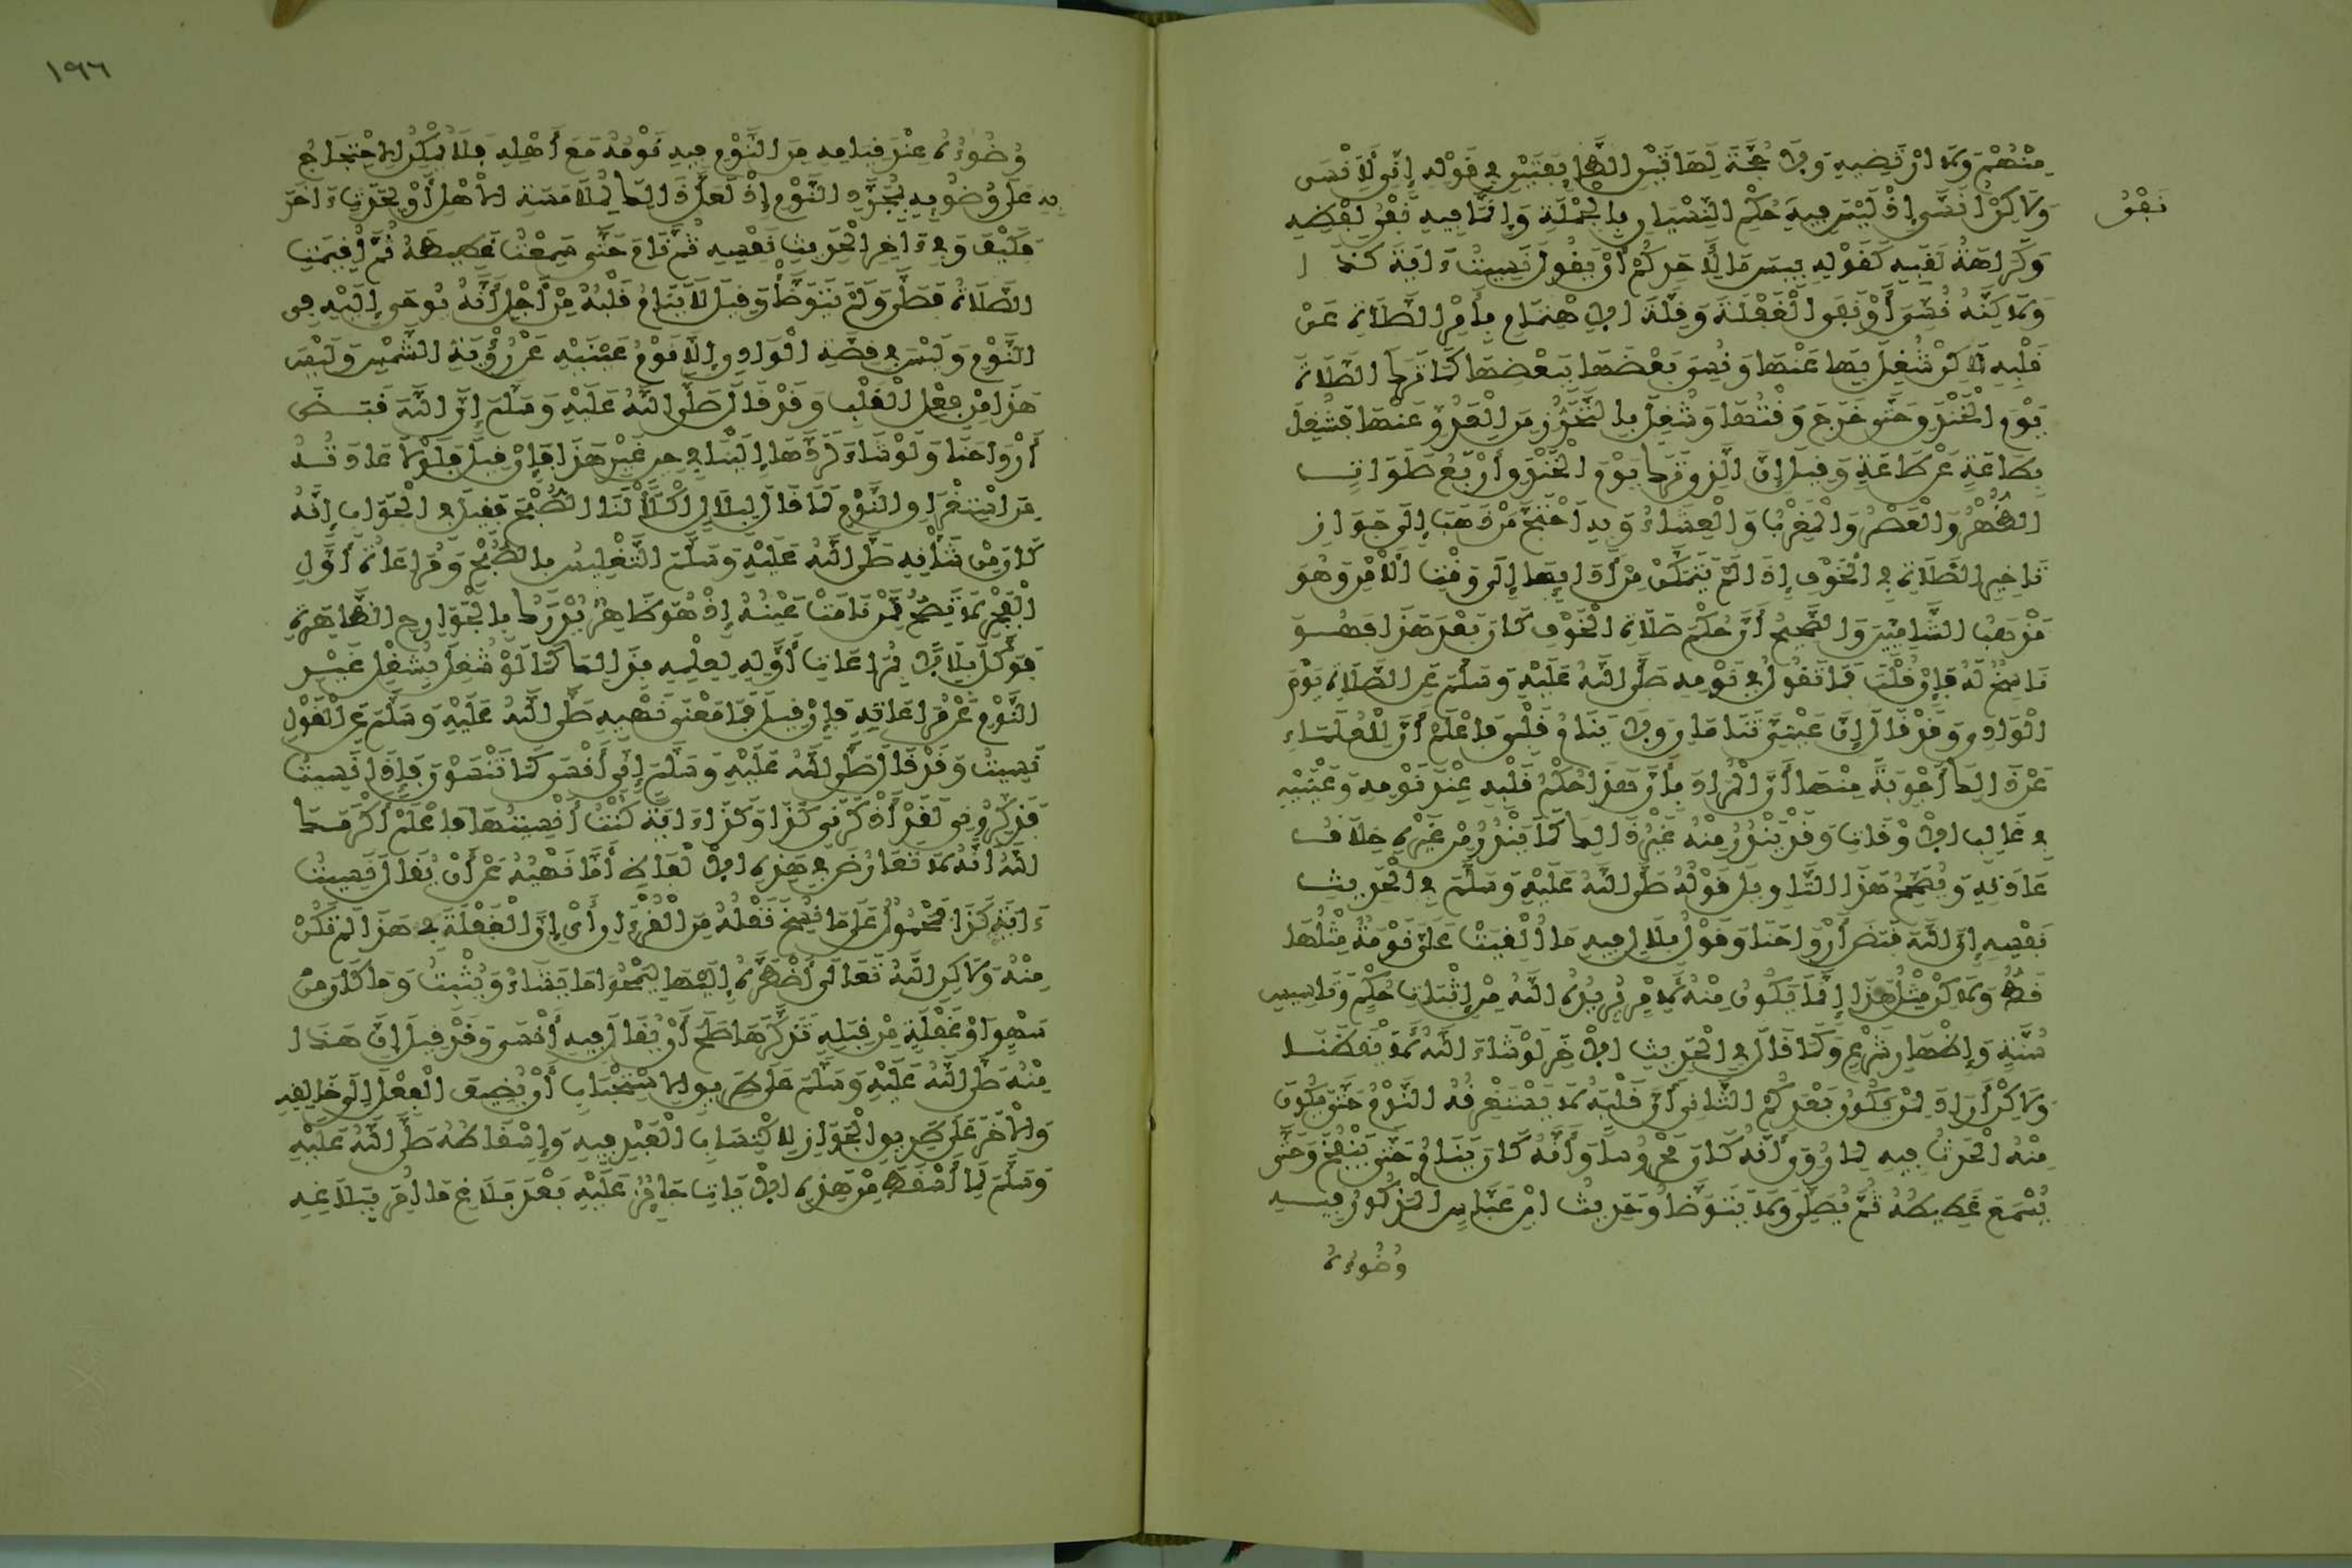 مِنْهُمْ وَلَا ارْتَضِيهِ وَلَا حُجَّةَ لِهَاتَيْنِ الطَّائِفَتَيْنِ فِي قَوْلِهِ إِنِّي لَأَنْسَى
وَلَاكِنْ أُنَسَّى إِذْ لَيْسَ فِيهِ حُكْمُ النِّسْيَانِ بِالْجُمْلَةِ وَإِنَّمَا فِيهِ نَفْيُ لَفْظِهِ
نَفْيُ
وَكَرَاهَةُ لَقَبِهِ كَقَوْلِهِ بِيسَ مَا لِأَحَدِكُمْ أَنْ يَقُولَ نَسِيتُ ءَايَةَ كَذَا
وَلَاكِنَّهُ نُسِّيَ أَوْ نَفْيِ الْغَفْلَةِ وَقِلَّةِ الِاهْتِمَامِ بِأَمْرِ الصَّلَاةِ عَنْ
قَلْبِهِ لَاكِنْ شُغِلَ بِهَا عَنْهَا وَنُسِّيَ بَعْضَهَا بِبَعْضِهَا كَمَا تَرَكَ الصَّلَاةَ
يَوْمَ الْخَنْدَقِ حَتَّى خَرَجَ وَقْتُهَا وَشُغِلَ بِالتَّحَرُّزِ مِنَ الْعَدُوِّ عَنْهَا فَشُغِلَ
بِطَاعَةٍ عَنْ طَاعَةٍ وَقِيلَ إِنَّ الَّذِي تَرَكَ يَوْمَ الْخَنْدَقِ أَرْبَعُ صَلَوَاتٍ
الظُّهْرُ وَالْعَصْرُ وَالْمَغْرِبُ وَالْعِشَاءُ وَبِهِ احْتَجَّ مَنْ ذَهَبَ إِلَى جَوَازِ
تَاخِيرِ الصَّلَاةِ فِي الْخَوْفِ إِذَا لَمْ يَتَمَكَّنْ مِنْ أَدَائِهَا إِلَى وَقْتِ الْأَمْنِ وَهُوَ
مَذْهَبُ الشَّامِيِّينَ وَالصَّحِيحُ أَنَّ حُكْمَ صَلَاةِ الْخَوْفِ كَانَ بَعْدَ هَذَا فَهُوَ
نَاسِخٌ لَهُ فَإِنْ قُلْتَ فَمَا تَقُولُ فِي نَوْمِهِ صَلَّى اللَّهُ عَلَيْهِ وَسَلَّمَ عَنِ الصَّلَاةِ يَوْمَ
الْوَادِي وَقَدْ قَالَ إِنَّ عَيْنَيَّ تَنَامَانِ وَلَا يَنَامُ قَلْبِي فَاعْلَمْ أَنَّ لِلْعُلَمَاءِ
عَنْ ذَالِكَ أَجْوِبَةً مِنْهَا أَنَّ الْمُرَادَ بِأَنَّ هَذَا حُكْمُ قَلْبِهِ عِنْدَ نَوْمِهِ وَعَيْنَيْهِ
فِي غَالِبِ الْأَوْقَاتِ وَقَدْ يَنْدُرُ مِنْهُ غَيْرُ ذَالِكَ كَمَا يَنْدُرُ مِنْ غَيْرِهِ خِلَافُ
عَادَتِهِ وَيُصَحِّحُ هَذَا التَّاوِيلَ قَوْلُهُ صَلَّى اللَّهُ عَلَيْهِ وَسَلَّمَ فِي الْحَدِيثِ
نَفْسِهِ إِنَّ اللَّهَ قَبَضَ أَرْوَاحَنَا وَقَوْلُ بِلَالٍ فِيهِ مَا أُلْقِيَتْ عَلَيَّ نَوْمَةٌ مِثْلُهَا
قَطُّ وَلَاكِنْ مِثْلُ هَذَا إِنَّمَا يَكُونُ مِنْهُ لِأَمْرٍ يُرِيدُهُ اللَّهُ مِنْ إِثْبَاتِ حُكْمٍ وَتَاسِيسِ
سُنَّةٍ وَإِظْهَارِ شَرْعٍ وَكَمَا قَالَ فِي الْحَدِيثِ الْآخَرِ لَوْ شَاءَ اللَّهُ لَأَيْقَظَنَا
وَلَاكِنْ أَرَادَ لِمَنْ يَكُونُ بَعْدَكُمُ الثَّانِي أَنَّ قَلْبَهُ لَا يَسْتَغْرِقُهُ النَّوْمُ حَتَّى يَكُونَ
مِنْهُ الْحَدَثُ فِيهِ لِمَا رُوِيَ أَنَّهُ كَانَ مَحْرُوسًا وَأَنَّهُ كَانَ يَنَامُ حَتَّى يَنْفُخَ وَحَتَّى
يُسْمَعَ غَطِيطُهُ ثُمَّ يُصَلِّي وَلَا يَتَوَضَّأُ وَحَدِيثُ ابْنِ عَبَّاسٍ الْمَذْكُورُ فِيهِ
وُضُوءُهُ
١٩٦
وُضُوءُهُ عِنْدَ قِيَامِهِ مِنَ النَّوْمِ فِيهِ نَوْمُهُ مَعَ أَهْلِهِ فَلَا يُمْكِنُ الِاحْتِجَاجُ
بِهِ عَلَى وُضُوئِهِ بِمُجَرَّدِ النَّوْمِ إِذْ لَعَلَّ ذَالِكَ لِمُلَامَسَةِ الْأَهْلِ أَوْ لِحَدَثٍ ءَاخَرَ
فَكَيْفَ وَفِي ءَاخِرِ الْحَدِيثِ نَفْسِهِ ثُمَّ نَامَ حَتَّى سَمِعْتُ غَطِيطَهُ ثُمَّ أُقِيمَتِ
الصَّلَاةُ فَصَلَّى وَلَمْ يَتَوَضَّأْ وَقِيلَ لَا يَنَامُ قَلْبُهُ مِنْ أَجْلِ أَنَّهُ يُوحَى إِلَيْهِ فِي
النَّوْمِ وَلَيْسَ فِي قِصَّةِ الْوَادِي إِلَّا نَوْمُ عَيْنَيْهِ عَنْ رُؤْيَةِ الشَّمْسِ وَلَيْسَ
هَذَا مِنْ فِعْلِ الْقَلْبِ وَقَدْ قَالَ صَلَّى اللَّهُ عَلَيْهِ وَسَلَّمَ إِنَّ اللَّهَ قَبَضَ
أَرْوَاحَنَا وَلَوْ شَاءَ لَرَدَّهَا إِلَيْنَا فِي حِينٍ غَيْرِ هَذَا فَإِنْ قِيلَ فَلَوْلَا عَادَتُهُ
مِنِ اسْتِغْرَاقِ النَّوْمِ لَمَا قَالَ لِبِلَالٍ اكْلَأْ لَنَا الصُّبْحَ فَقِيلَ فِي الْجَوَابِ إِنَّهُ
كَانَ مِنْ شَأْنِهِ صَلَّى اللَّهُ عَلَيْهِ وَسَلَّمَ التَّغْلِيسُ بِالصُّبْحِ وَمُرَاعَاةُ أَوَّلِ
الْفَجْرِ لَا تَصِحُّ مِمَّنْ نَامَتْ عَيْنُهُ إِذْ هُوَ ظَاهِرٌ يُدْرَكُ بِالْجَوَارِحِ الظَّاهِرَةِ
فَوَكَّلَ بِلَالًا بِمُرَاعَاتِ أَوَّلِهِ لِيُعْلِمَهُ بِذَالِكَ كَمَا لَوْ شُغِلَ بِشُغْلٍ غَيْرِ
النَّوْمِ عَنْ مُرَاعَاتِهِ فَإِنْ قِيلَ فَمَا مَعْنَى نَهْيِهِ صَلَّى اللَّهُ عَلَيْهِ وَسَلَّمَ عَنِ الْقَوْلِ
نَسِيتُ وَقَدْ قَالَ صَلَّى اللَّهُ عَلَيْهِ وَسَلَّمَ إِنِّي أَنْسَى كَمَا تَنْسَوْنَ فَإِذَا نَسِيتُ
فَذَكِّرُونِي لَقَدْ أَذْكَرَنِي كَذَا وَكَذَا ءَايَةً كُنْتُ أُنْسِيتُهَا فَاعْلَمْ أَكْرَمَكَ
اللَّهُ أَنَّهُ لَا تَعَارُضَ فِي هَذِهِ الْأَلْفَاظِ أَمَّا نَهْيُهُ عَنْ أَنْ يُقَالَ نَسِيتُ
ءَايَةَ كَذَا فَمَحْمُولٌ عَلَى مَا نُسِخَ نَقْلُهُ مِنَ الْقُرْءَانِ أَيْ إِنَّ الْغَفْلَةَ فِي هَذَا لَمْ تَكُنْ
مِنْهُ وَلَاكِنِ اللَّهُ تَعَالَى أَضْطَرَّهُ إِلَيْهَا لِيَمْحُوَ مَا يَشَاءُ وَيُثْبِتُ وَمَا كَانَ مِنْ
سَهْوٍ أَوْ غَفْلَةٍ مِنْ قِبَلِهِ تَذَكَّرَهَا صَلَحَ أَنْ يُقَالَ فِيهِ أَنْسَى وَقَدْ قِيلَ إِنَّ هَذَا
مِنْهُ صَلَّى اللَّهُ عَلَيْهِ وَسَلَّمَ عَلَى طَرِيقِ الِاسْتِحْبَابِ أَنْ يُضِيفَ الْفِعْلَ إِلَى خَالِقِهِ
وَالْآخَرَ عَلَى طَرِيقِ الْجَوَازِ لِاكْتِسَابِ الْعَبْدِ فِيهِ وَإِسْقَاطُهُ صَلَّى اللَّهُ عَلَيْهِ
وَسَلَّمَ لِمَا أَسْقَطَ مِنْ هَذِهِ الْآيَاتِ جَائِزٌ عَلَيْهِ بَعْدَ بَلَاغِ مَا أُمِرَ بِبَلَاغِهِ